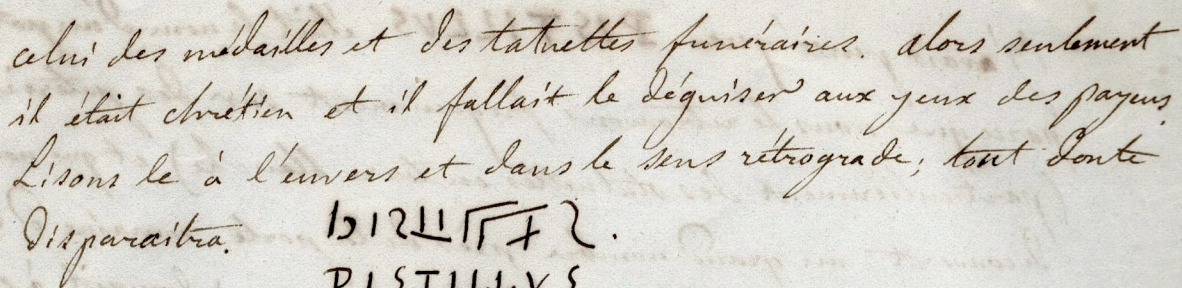 celui des médailles et des tatuettes funéraires. alors seulement
il était chrétien et il fallait le déguiser aux yeux des payens.
Lisons le à l'envers et dans le sens rétrograde ; tout doute
disparaitra.
PISTILLVS